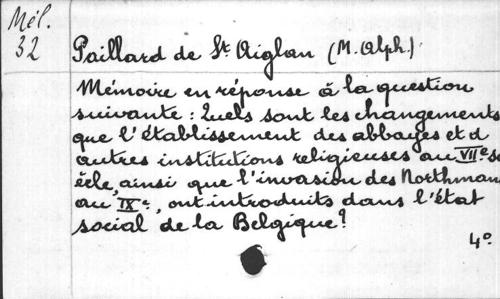 Mél.
32
Paillard de St. Aiglan (M. Alph.)
Mémoire en réponse à la question
suivante : Quels sont les changements
que l'établissement des abbayes et d
autres institutions religieuses au VIIe si
ècle, ainsi que l'invasion des Northmans
au IXe, ont introduits dans l'état
social de la Belgique?
4o